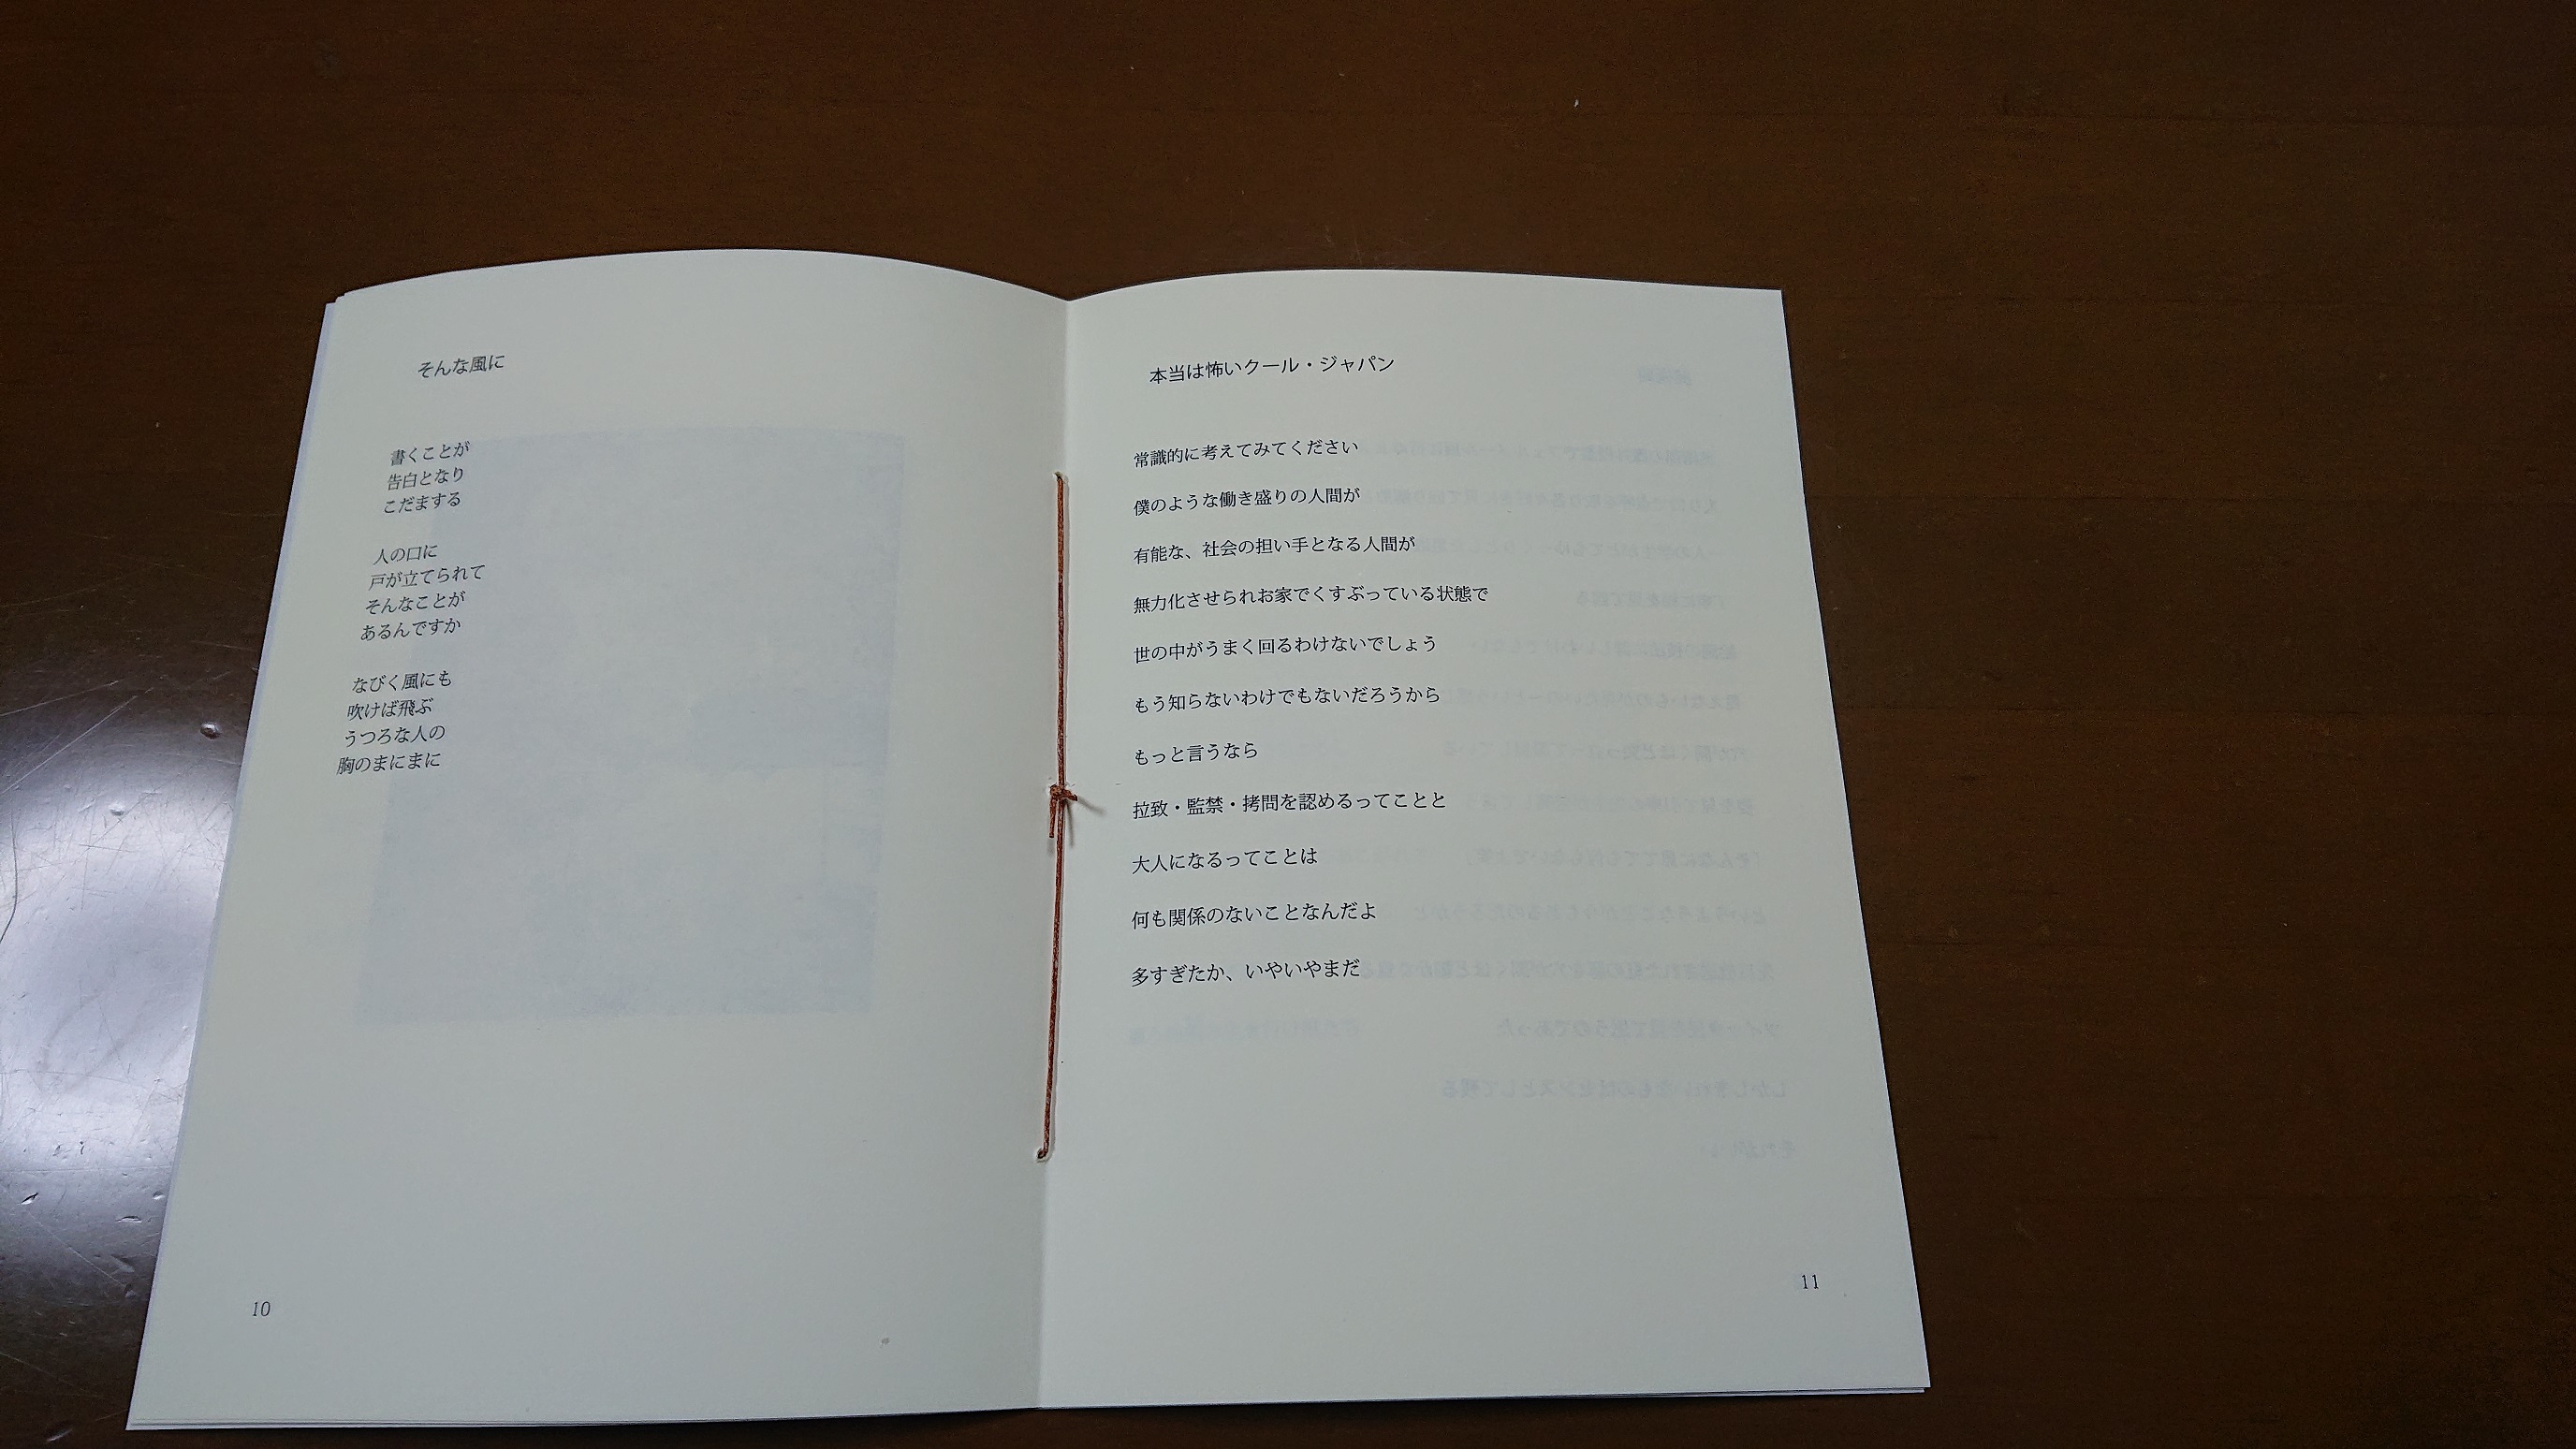 そんな風に
書くことが
告白となり
こだまする
人の口に
戸が立てられて
そんなことが
あるんですか
なびく風にも
吹けば飛ぶ
うつろな人の
胸のまにまに
10
本当は怖いクール・ジャパン
常識的に考えてみてください
僕のような働き盛りの人間が
有能な、社会の担い手となる人間が
無力化させられお家でくすぶっている状態で
世の中がうまく回るわけないでしょう
もう知らないわけでもないだろうから
もっと言うなら
拉致・監禁・拷問を認めるってことと
大人になるってことは
何も関係のないことなんだよ
多すぎたか、いやいやまだ
11